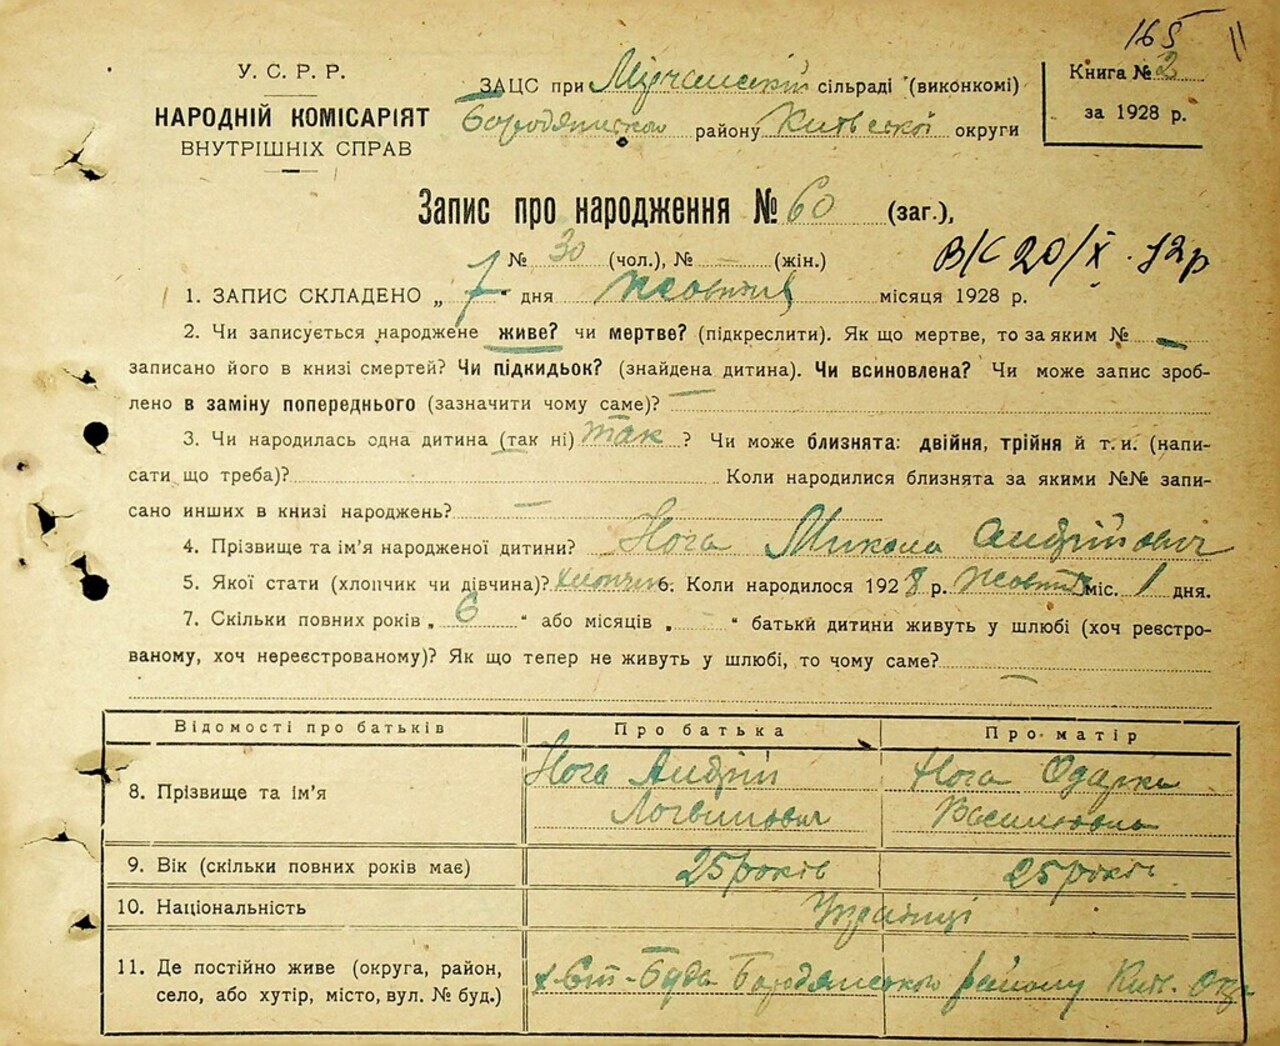 165
У. С. Р. Р.
НАРОДНІЙ КОМІСАРІЯТ
ВНУТРІШНІХ СПРАВ
ЗАЦС при Мірчанській сільраді (виконкомі)
Бородянского району Київської округи
Книга № 2
за 1928 р.
Запис про народження № 60 (заг.),
№ 30 (чол.), № – (жін.)
В/С 20/X
1. ЗАПИС СКЛАДЕНО „ 7 " дня Жовтня місяця 1928 р.
2. Чи записується народжене живе? чи мертве? (підкреслити). Як що мертве, то за яким № –
записано його в книзі смертей? Чи підкидьок? (знайдена дитина). Чи всиновлена? Чи може запис зроб-
лено в заміну попереднього (зазначити чому саме)? –
3. Чи народилась одна дитина (так ні) так ? Чи може близнята: двійня, трійня й т. и. (напи-
сати що треба)? Коли народилися близнята за якими №№ запи-
сано инших в книзі народжень? –
4. Прізвище та ім'я народженої дитини? Нога Микола Андрійович
5. Якої стати (хлопчик чи дівчина)? хлопчик 6. Коли народилося 1928 р. Жовтня міс. 1 дня.
7. Скільки повних років „ 6 " або місяців „ – " батьки дитини живуть у шлюбі (хоч реєстро-
ваному, хоч нереєстрованому)? Як що тепер не живуть у шлюбі, то чому саме? –
Відомості про батьків Про батька Про матір
8. Прізвище та ім'я Нога Андрій Логвинович Нога Одарка Василювна
9. Вік (скільки повних років має) 25 років 25 років
10. Національність Українці
11. Де постійно живе (округа, район,
село, або хутір, місто, вул. № буд.) Буда Бородянського району Київ. Окр.